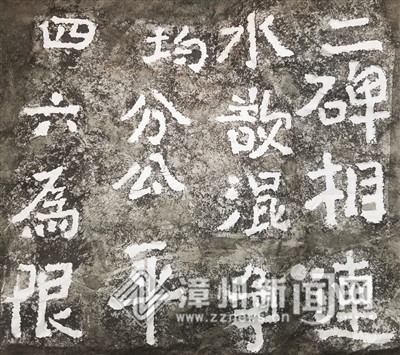 二碑相連
水歃混争
均分公平
四六為限
漳州新闻网
www.zznews.cn